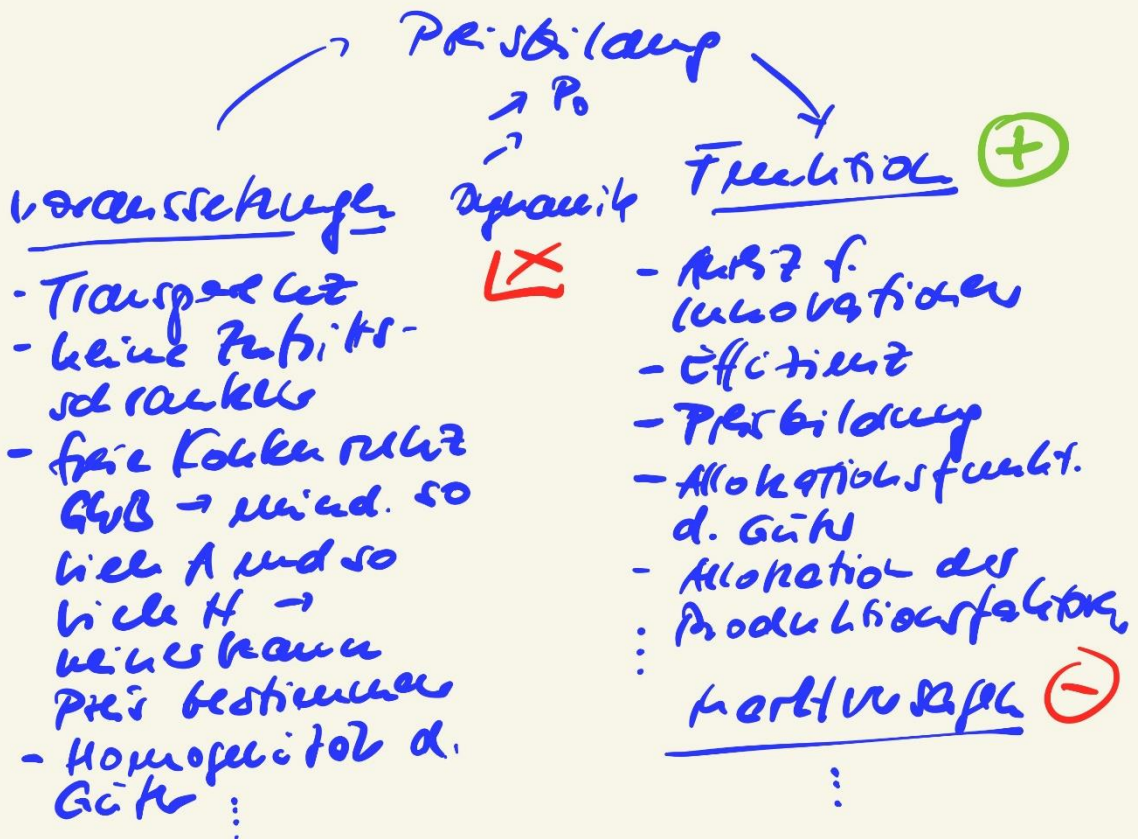 Preisbildung
P₀
Voraussetzungen
Dynamik
- Transparenz
- keine Zutritts-
schranken
- freie Konkurrenz
→ mind. so
viele A und so
viele N →
keiner kann
Preis bestimmen
- Homogenität d.
Güter
⋮
Funktion +
- Anreiz f.
Innovationen
- Effizienz
- Preisbildung
- Allokationsfunkt.
d. Güter
- Allokation der
Produktionsfaktoren
⋮
Marktversagen −
⋮